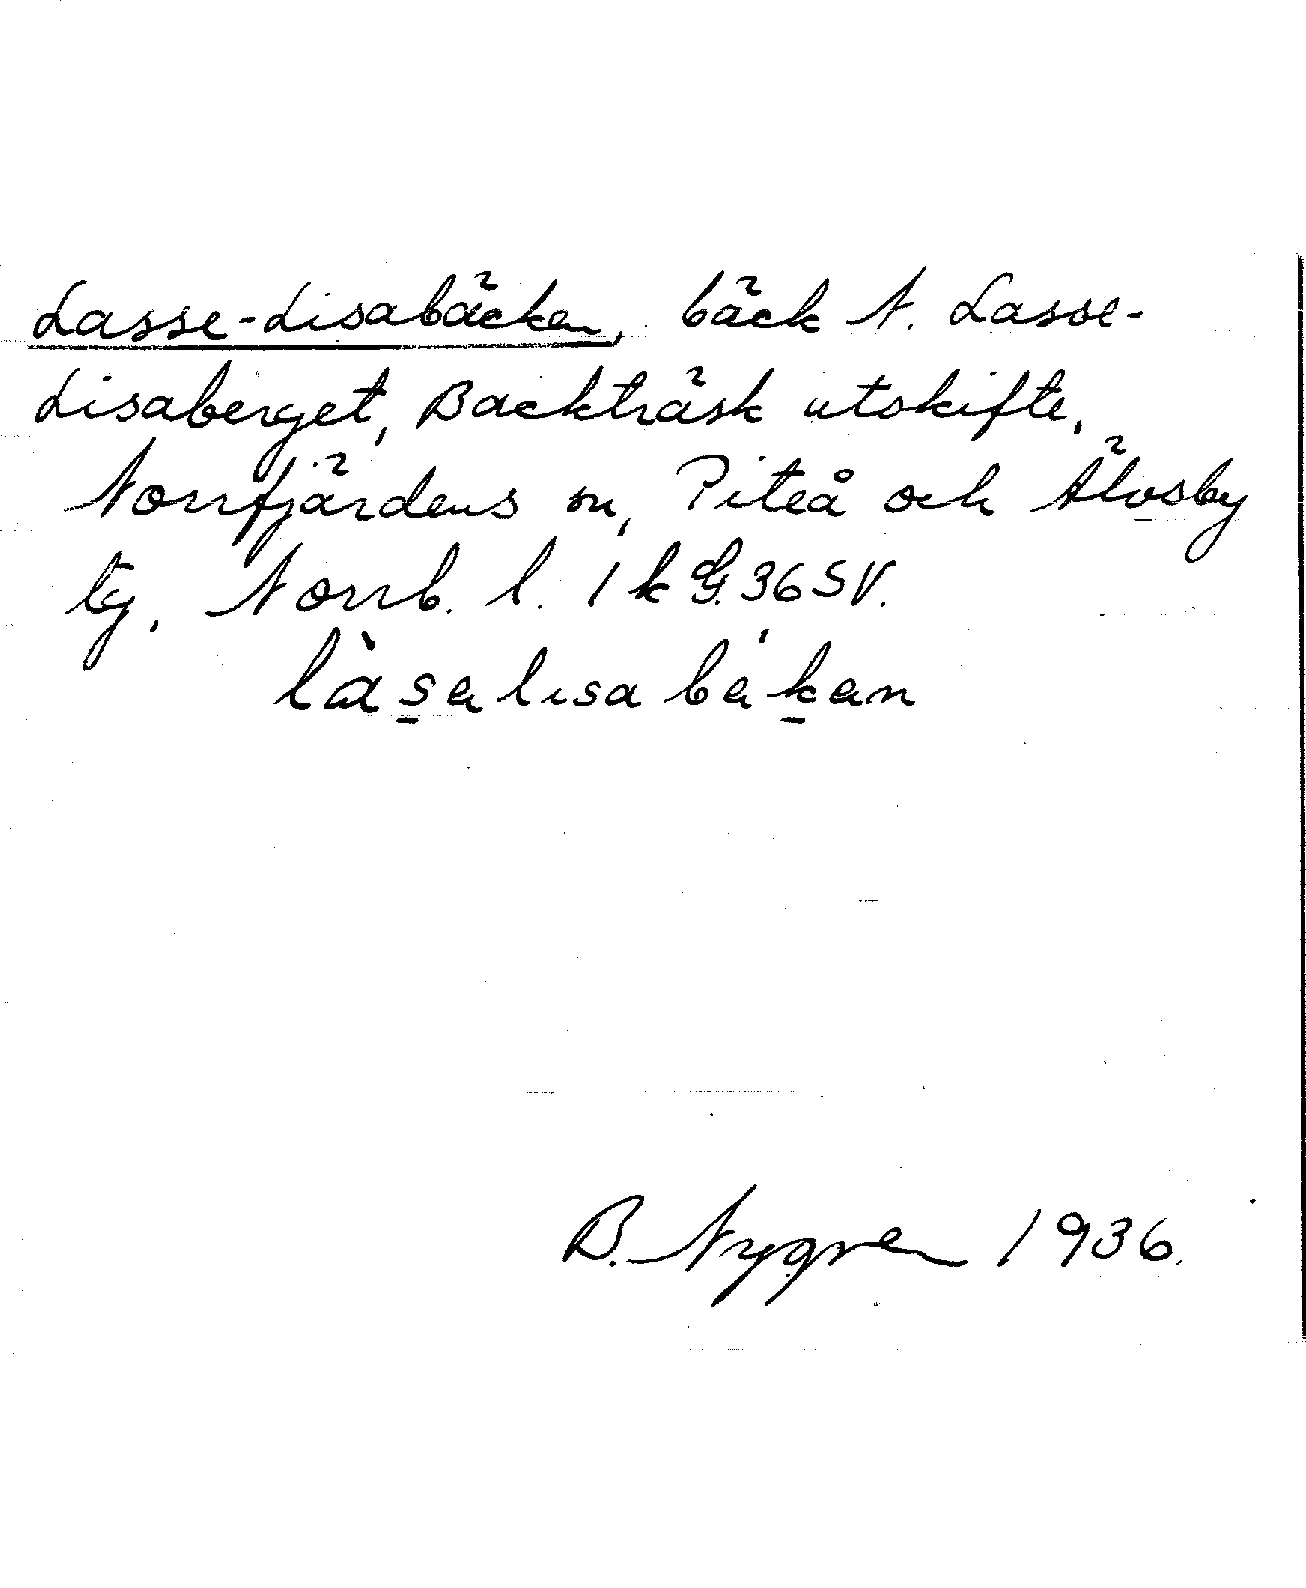 Lasse-Lisabäcken, bäck N. Lasse-
Lisaberget, Backträsk utskifte,
Norrfjärdens sn, Piteå och Älvsby
tg, Norrb. l. 1 k G. 36 SV.
làsalisabákan
B. Nygren 1936.